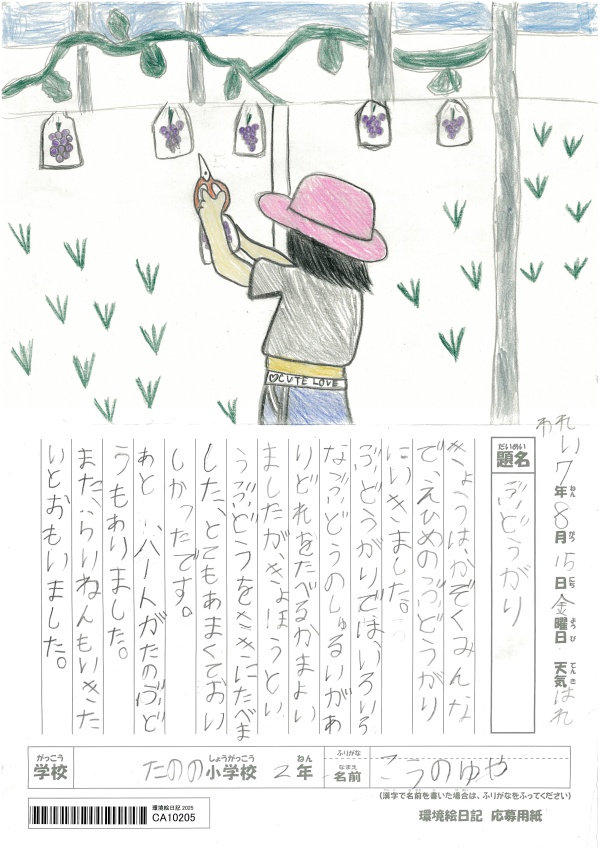 CUTE LOVE
れい7年8月15日金曜日 天気はれ
ねん がつ にち ようび てんき
だいめい
題名
ぶどうがり
きょうは、かぞくみんな
で、えひめのぶどうがり
にいきました。
ぶどうがりでは、いろいろ
なぶどうのしゅるいがあ
りどれをたべるかまよい
ましたが、きょほうとい
うぶどうをさきにたべま
した、とてもあまくておい
しかったです。
あと、ハートがたのぶど
うもありました。
また、らいねんもいきた
いとおもいました。
がっこう しょうがっこう ねん
学校 たのの小学校 2年
ふりがな
なまえ
名前 こうのゆや
(漢字で名前を書いた場合は、ふりがなをふってください)
環境絵日記 2025
CA10205
環境絵日記 応募用紙